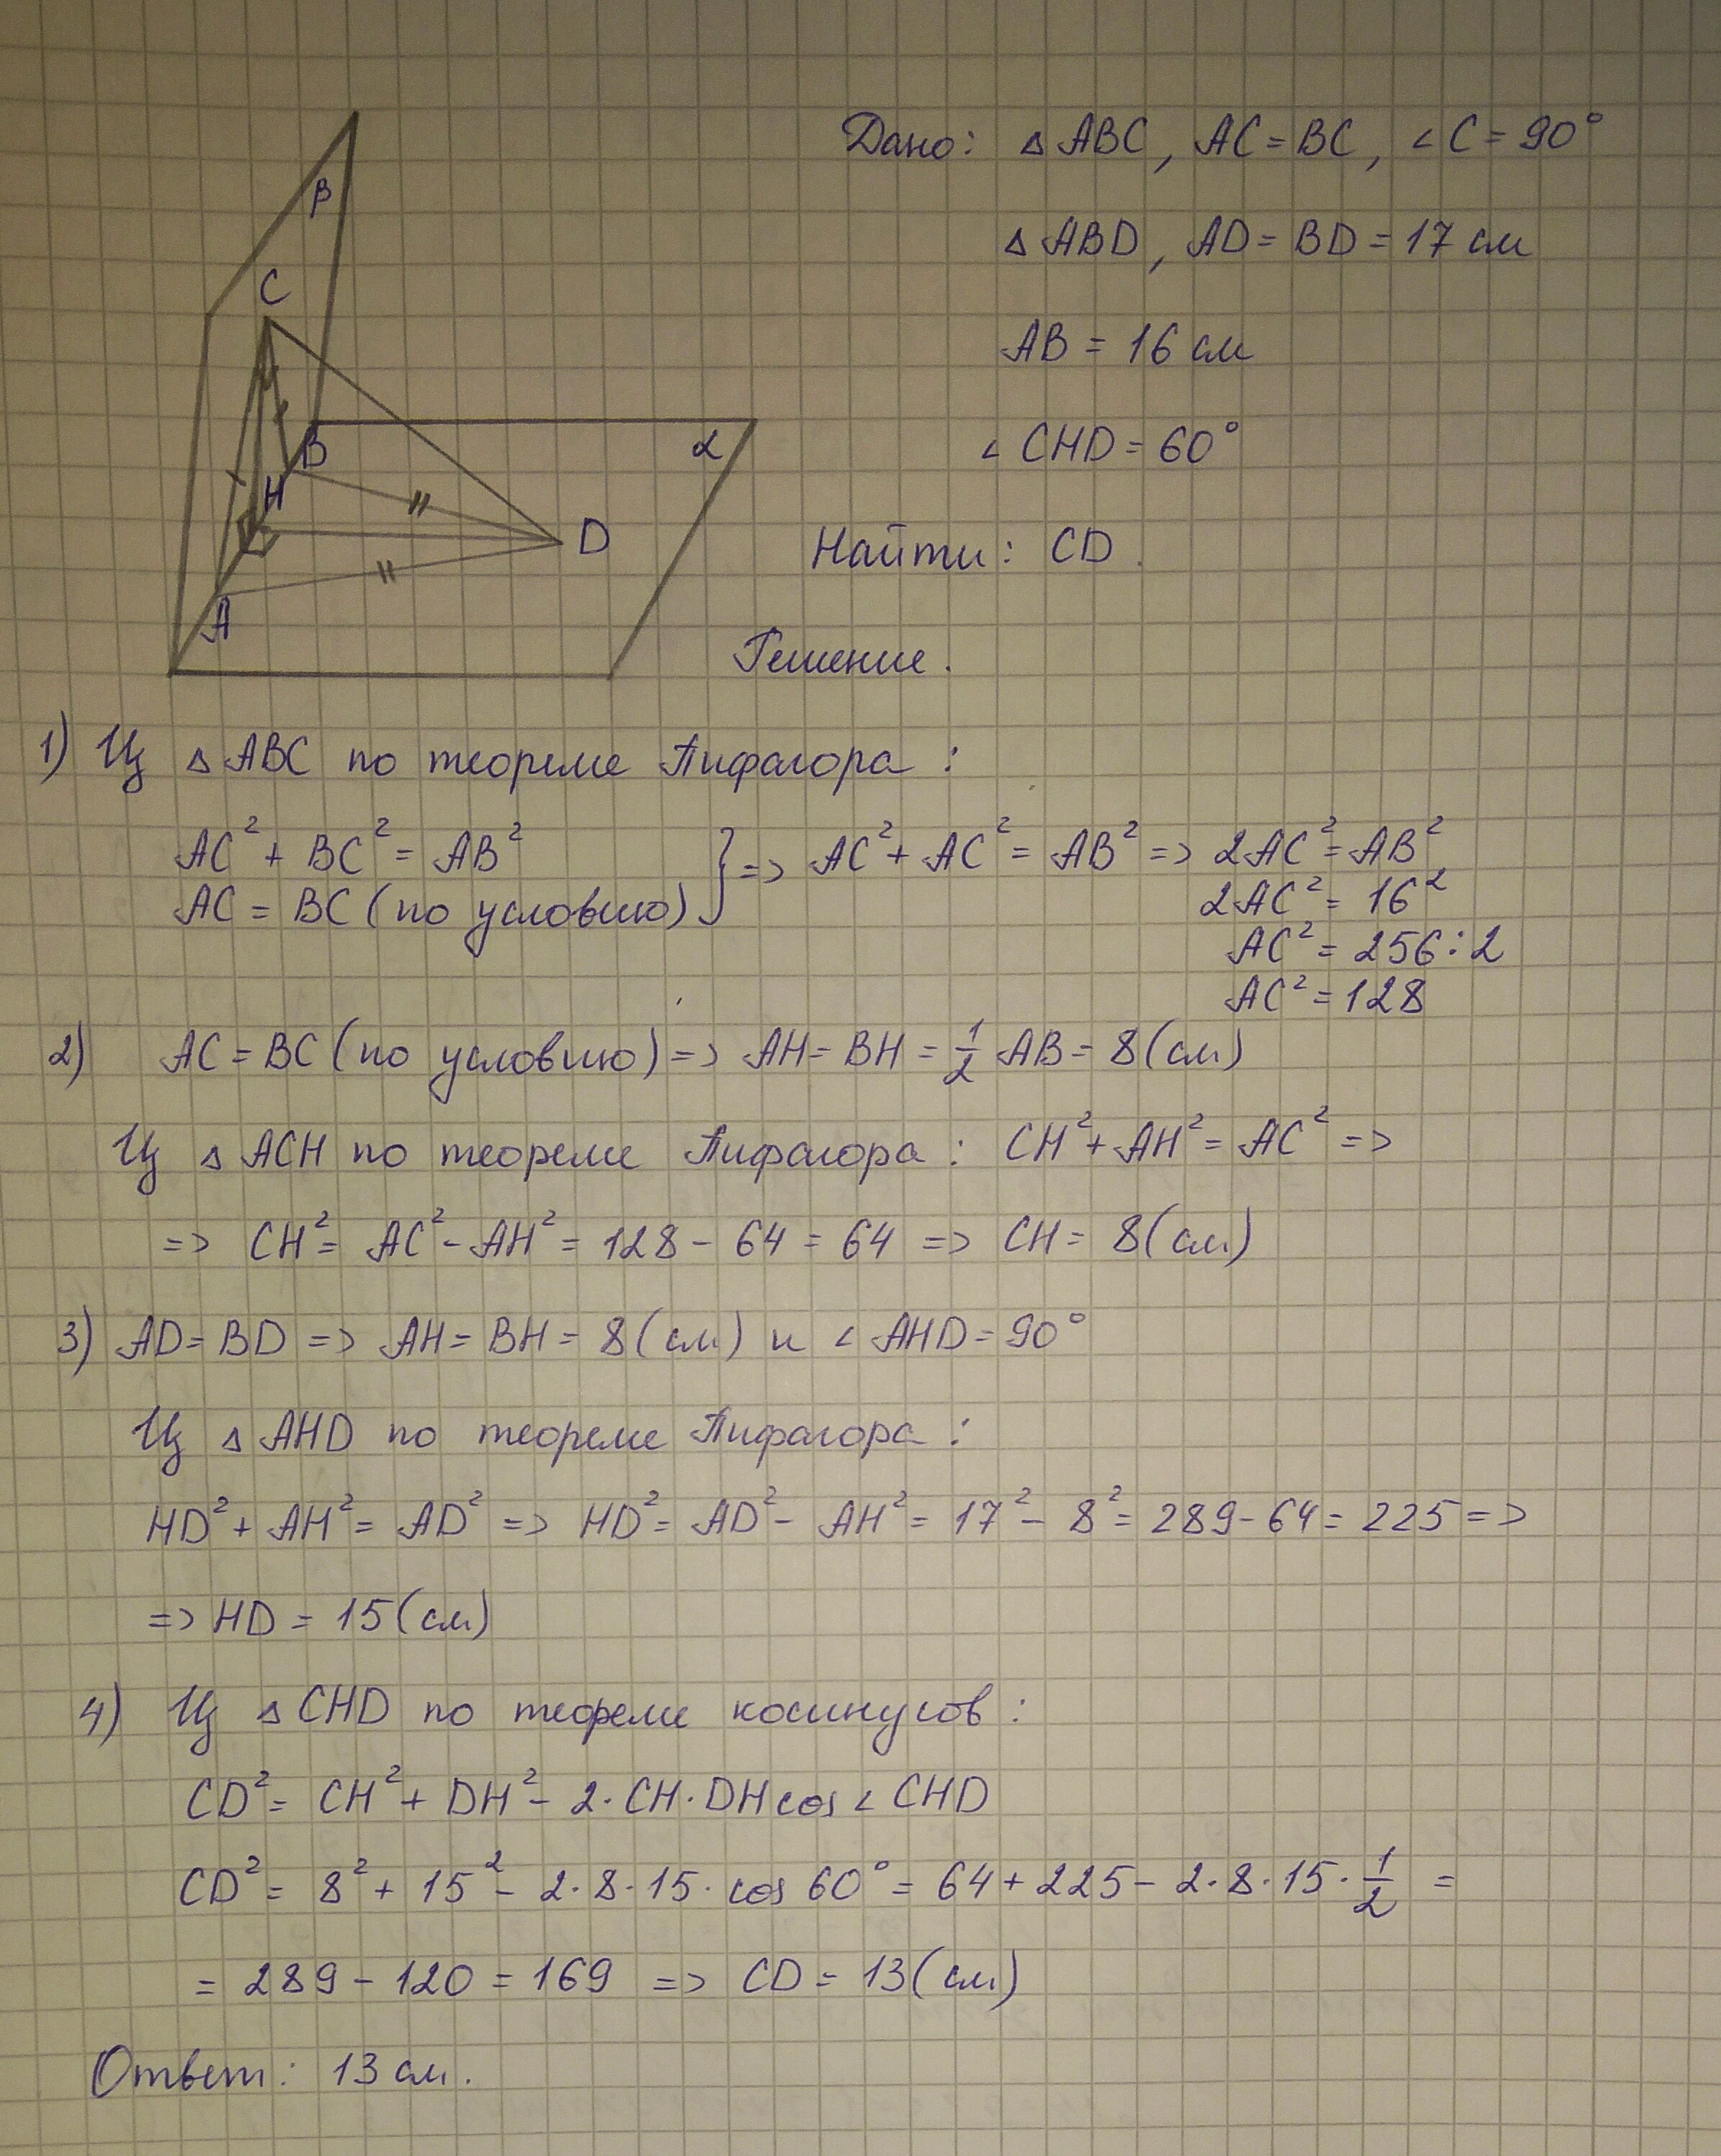 β
C
B
α
H
D
A
Дано: △ABC, AC = BC, ∠C = 90°
△ABD, AD = BD = 17 см
AB = 16 см
∠CHD = 60°
Найти: CD.
Решение.
1) Из △ABC по теореме Пифагора:
AC² + BC² = AB²
AC = BC (по условию) } => AC² + AC² = AB² => 2AC² = AB²
2AC² = 16²
AC² = 256:2
AC² = 128
2) AC = BC (по условию) => AH = BH = 1/2 AB = 8 (см)
Из △ACH по теореме Пифагора: CH² + AH² = AC² =>
=> CH² = AC² - AH² = 128 - 64 = 64 => CH = 8 (см)
3) AD = BD => AH = BH = 8 (см) и ∠AHD = 90°
Из △AHD по теореме Пифагора:
HD² + AH² = AD² => HD² = AD² - AH² = 17² - 8² = 289 - 64 = 225 =>
=> HD = 15 (см)
4) Из △CHD по теореме косинусов:
CD² = CH² + DH² - 2·CH·DH cos ∠CHD
CD² = 8² + 15² - 2·8·15·cos 60° = 64 + 225 - 2·8·15·1/2 =
= 289 - 120 = 169 => CD = 13 (см)
Ответ: 13 см.